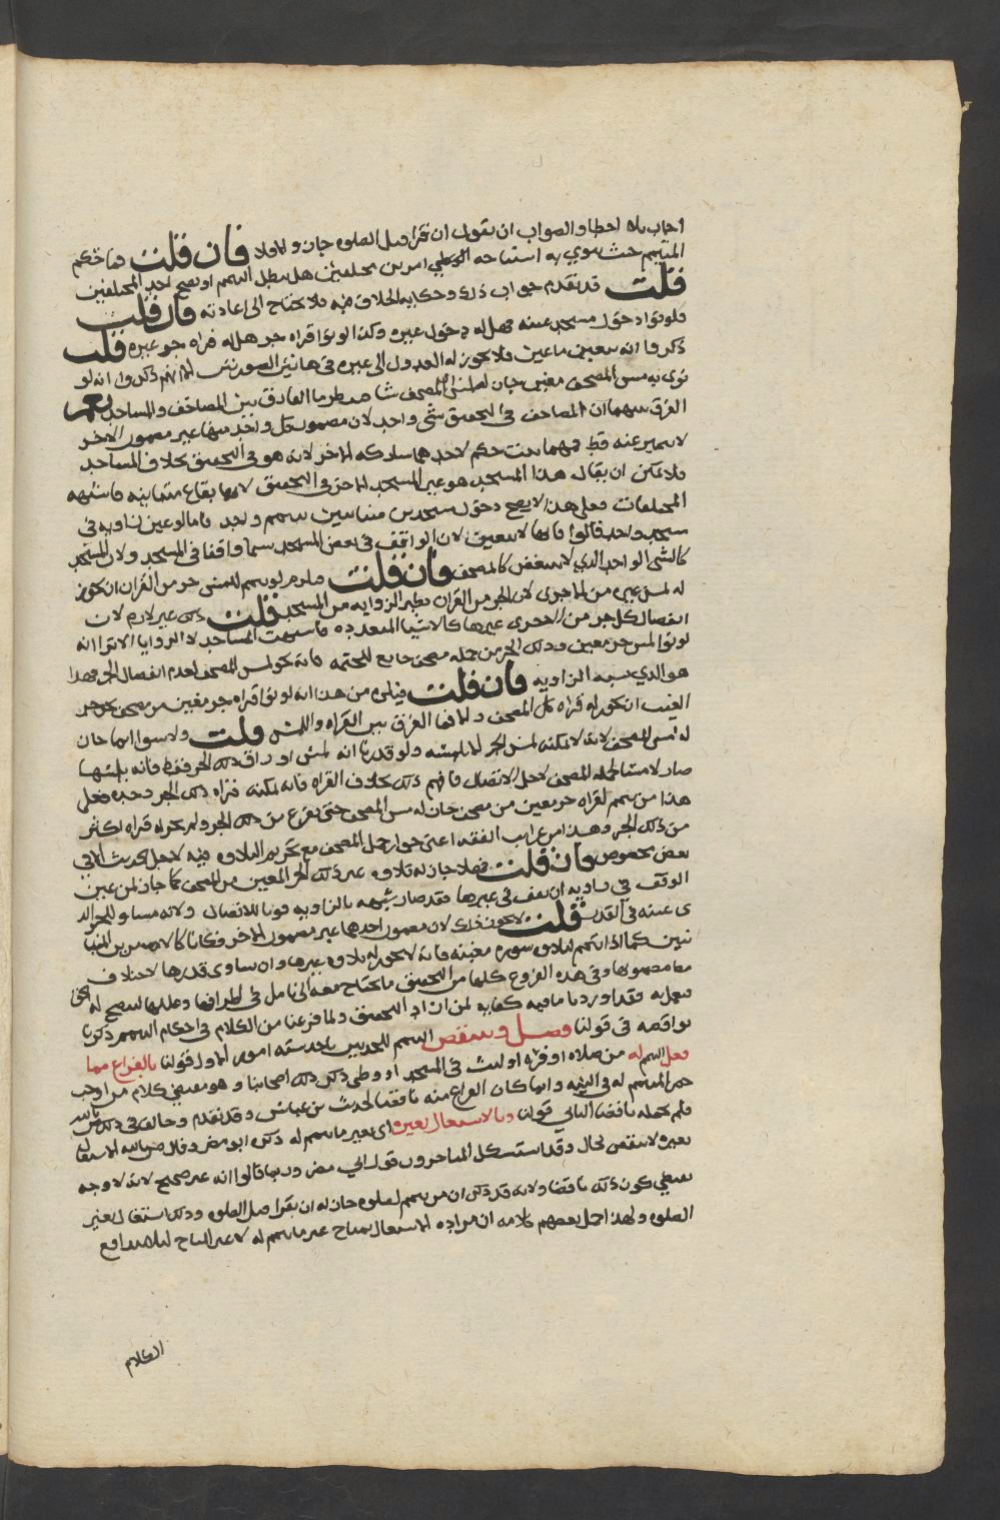 اجاب بان اخطا والصواب ان يقول ان قرا قبل الصلوه جاز والا فلا فان قلت فما حكم
المتيمم حيث نوي به استباحه امرين مختلفين هل يبطل التيمم او يصح لاحد المختلفين
قلت قد تقدم جواب ذلك وحكايه الخلاف فيه فلا يحتاج الى اعادته فان قلت
فلو نوا دخول مسجد بعينه فهل له دخول غيره وكذا لو نوا قراه جزو هل له قراه جزو غيره قلت
ذكروا انه يتعين ما عين فلا يجوز له العدول الى غيره في هاتين الصورتين الا انهم ذكروا انه لو
نوى به مس المصحف معين جاز له لمس اي المصحف شا فينظر ما الفارق بين المصاحف والمساجد نعم
الفرق بينهما ان المصاحف في التحقيق شي واحد لان مضمون كل واحد منها عين مضمون الاخر
لا يتميز عنه قط فمهما ثبت حكم لاحدهما شاركه الاخر لانه هو في التحقيق بخلاف المساجد
فلا يمكن ان يقال هذا المسجد هو عين المسجد الاخر في التحقيق لانها بقاع متباينه فاشبهه
المختلفات فعلى هذا لا يصح دخول مسجدين متباينين بتيمم واحد فاما لو عين زاويه في
مسجد واحد قالوا فانها لا تتعين لان الواقف في بعض المسجد يسما واقفا في المسجد ولان المسجد
كالشي الواحد الذي لا يتبعض كالمصحف فان قلت فيلزم لو تيمم للمس جزو من القران ان يكون
له لمس غيره من الاجزى لان الجزو من القران نظير الزاويه من المسجد قلت ذلك غير لازم لان
انفصال كل جزو من الاجزى غيرها كالاشيا المتعدده فاشبهت المساجد لا الزوايا الا ترا انه
لو نوا لمس جزو معين وذلك الجزو من جمله مصحف جامع للختمه فانه يجوز لمس المصحف لعدم انفصال الجزو فهذا
هو الذي يشبه الزاويه فان قلت فيلزم من هذا انه لو نوا قراه جزو معين من مصحف
ان يكون له قراه كل المصحف والا فما الفرق بين القراه واللمس قلت ولا سوا انما جاز
له لمس المصحف لانه لا يمكنه لمس الجزو الا بلمسه ولو قدرنا انه لمس اوراق ذلك الجزو فقط فانه بلمسها
صار لامسا لجمله المصحف لاجل الاتصال فافهم ذلك بخلاف القراه فانه يمكنه قراه ذلك الجزو وحده فعلى
هذا من تيمم لقراه جزو معين من مصحف جاز له مس المصحف حتى يفرغ من ذلك الجزو ولم يجز له قراه اكثر
من ذلك الجزو وهذا من غرايب الفقه اعنى جواز حمل المصحف مع تحريم التلاوه فيه لاجل
بعض مخصوص فان قلت فهلا جاز له تلاوه غير ذلك الجزو المعين من المصحف كما جاز لمن عين
الوقف في زاويه ان يقف في غيرها فقد صار شبهه بالزاويه قويا للاتصال ولانه مساو للجزو الذي
عينه في القدر قلت لا يجوز ذلك لان مضمون احدهما غير مضمون الاخر فكانا كالامرين المتبا
ينين كما اذا تيمم لتلاوه سوره معينه فانه لا يجوز له تلاوه غيرها وان ساوى قدرها لاختلاف
مضمونها وفي هذه الفروع كلها من التحقيق ما يحتاج معه الى تامل في اطرافها وعللها ليصح له
العمل به فقد اوردنا ما فيه كفايه لمن اراد التحقيق ولما فرغنا من الكلام في احكام التيمم ذكرنا
نواقضه في قولنا فصل وينتقض التيمم للحدثين باحد سته امور الاول قولنا بالفراغ مما
فعل التيمم له من صلاه او قراه او لبث في المسجد او وطى ذكر ذلك اصحابنا وهو مقتضى كلام من اوجب
المتيمم له في النيه وانما كان الفراغ منه ناقضا لحديث بن عباس وقد تقدم وخالف في ذلك
فلم يجعله ناقضا الثاني قولنا وبالاشتغال بغيره اي بغير ما تيمم له ذكره ابو مضر وقال الاشتغال
بغيره لا ينقض بحال وقد استشكل المتاخرون قول ابي مضر وربما قالوا انه غير صحيح لانه لا وجه
يقتضي كون ذلك ناقضا ولانه قد ذكر ان من تيمم لصلوه جاز له ان يقرا قبل الصلوه وذلك اشتغال بغير
الصلوه ولهذا حمل بعضهم كلامه ان مراده الاشتغال بمباح غير ما تيمم له لا غير المباح ليلا يتدافع
الكلام